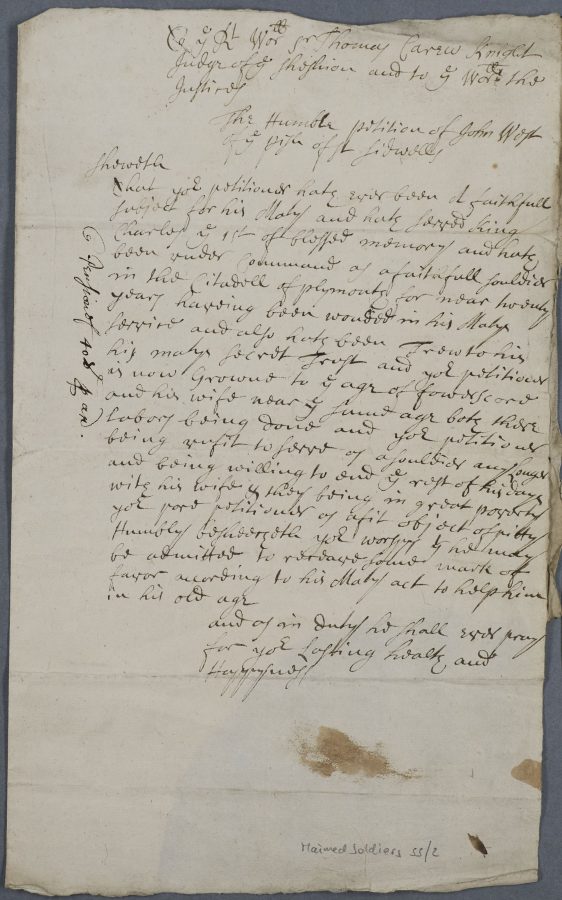 To ye Rt Worll Sr Thomas Carew Knight
Judge of ye Sheshion and to ye Worll the
Justices
The Humble petition of John West
of ye pish of st Sidwells
Sheweth
that yor petitioner hath ever been a faithfull
subject for his Matys and hath served King
Charles ye 1st of blessed memory and hath
been under Command as a faithfull souldier
in the Citadell of plymouth for near twenty
years haveing been wonded in his Matys
service and also hath been Trew to his
his matys secret Trost and yor petitioner
is now Growne to ye age of fowerscore
and his wife near ye same age both there
labors being done and yor petitioner
being unfit to serve as a souldier any longer
and being willing to end ye rest of his days
with his wife & they being in great poverty
yor pore petitioner as a fit object of pitty
Humbly besheecheth yor worshps yt he may
be admitted to receave some mark of
favor acording to his Matys act to help him
in his old age
and as in duty he shall ever pray
for yor Lasting health and
Happyness
Pensioned 40s p an.
Maimed Soldiers 55/2